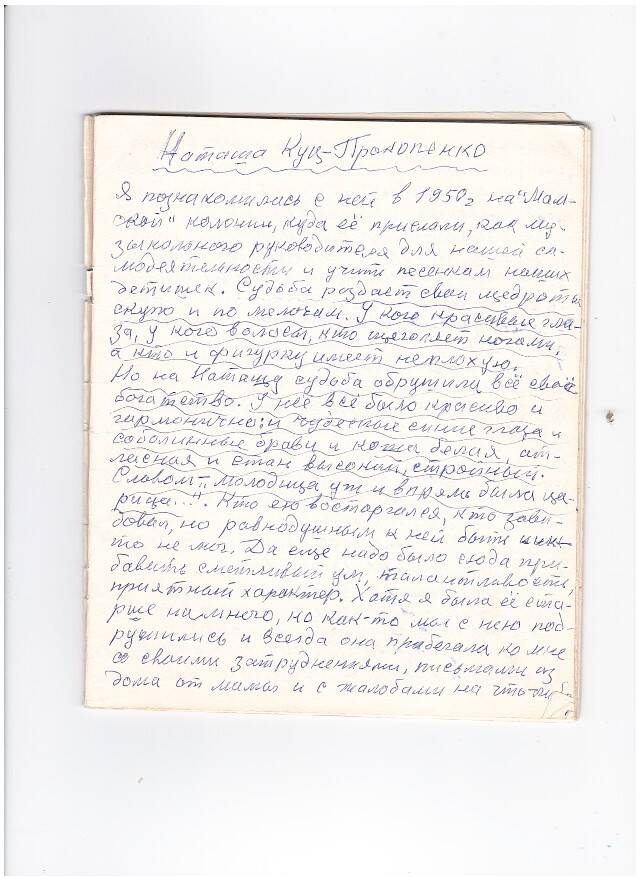 Наташа Куц-Прокопенко
Я познакомилась с ней в 1950г на "Мам-
ской" колонии, куда её прислали, как му-
зыкального руководителя для нашей са-
модеятельности и учить песенкам наших
детишек. Судьба раздаёт свои щедроты
скупо и по мелочам. У кого красивые гла-
за, у кого волосы, кто щеголяет ногами,
а кто и фигурку имеет неплохую.
Но на Наташу судьба обрушила всё своё
богатство. У неё всё было красиво и
гармонично: и чудесные синие глаза и
соболинные брови и кожа белая, ат-
ласная и стан высокий, стройный.
Словом „молодица уж и впрямь была ца-
рица...". Кто ею восторгался, кто зави-
довал, но равнодушным к ней быть ник-
то не мог. Да ещё надо было сюда при-
бавить сметливый ум, талантливость,
приятный характер. Хотя я была её ста-
рше намного, но как-то мы с нею под-
ружились и всегда она прибегала ко мне
со своими затруднениями, письмами из
дома от мамы и с жалобами на что-ни